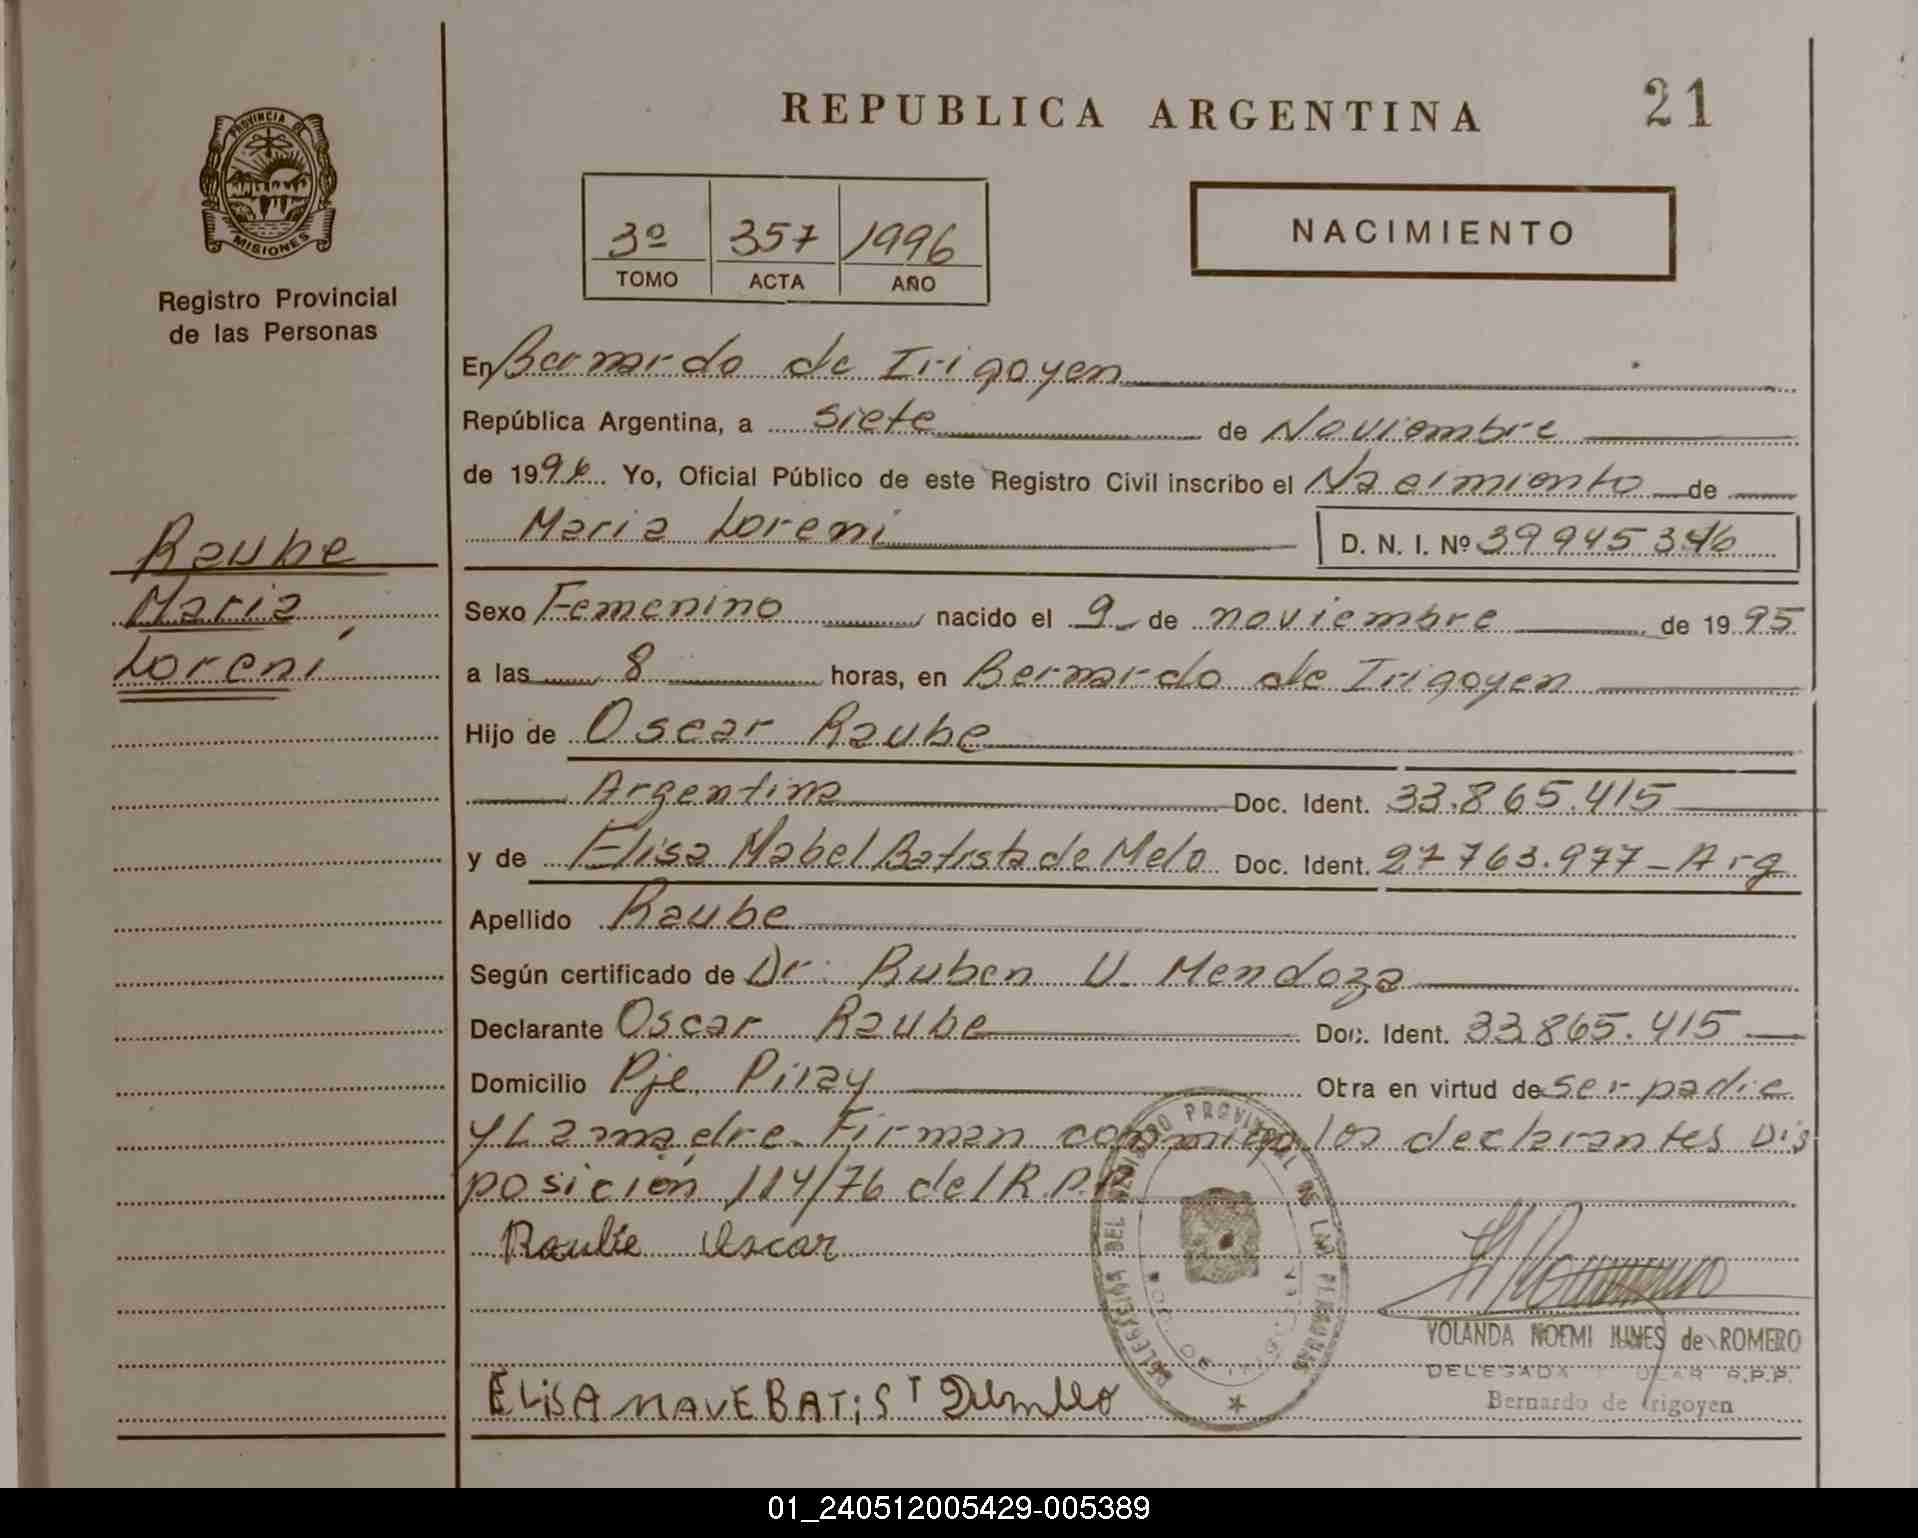 REPUBLICA ARGENTINA
21
PROVINCIA DE
MISIONES
Registro Provincial
de las Personas
3º 357 1996
TOMO ACTA AÑO
NACIMIENTO
En Bernardo de Irigoyen
República Argentina, a siete de Noviembre
de 1996 Yo, Oficial Público de este Registro Civil inscribo el Nacimiento de
Maria Loreni D. N. I. Nº
Raube
Maria
Loreni
Sexo Femenino nacido el 9 de noviembre de 1995
a las 8 horas, en Bernardo de Irigoyen
Hijo de Oscar Raube
Argentina Doc. Ident. 33.865.415
y de Elisa Mabel Batista de Melo Doc. Ident. 27763.977 - Arg
Apellido Raube
Según certificado de Dr. Ruben U. Mendoza
Declarante Oscar Raube Doc. Ident. 33.865.415
Domicilio Pje. Piray Otra en virtud de ser padre
y La madre. Firman conmigo los declarantes Dis
posición 114/76 del R.P.P.
Raube Oscar
DELEGACION DEL REGISTRO PROVINCIAL DE LAS PERSONAS
YOLANDA NOEMI de ROMERO
DELEGADA R.P.P.
Bernardo de Irigoyen
ELiSA MAVE BATiST
01_240512005429-005389